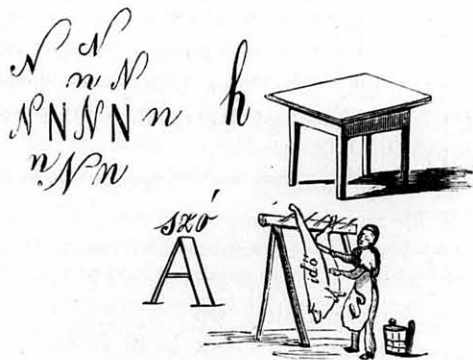 N N
n N
N N N N n h
n N n
szó
A
idő